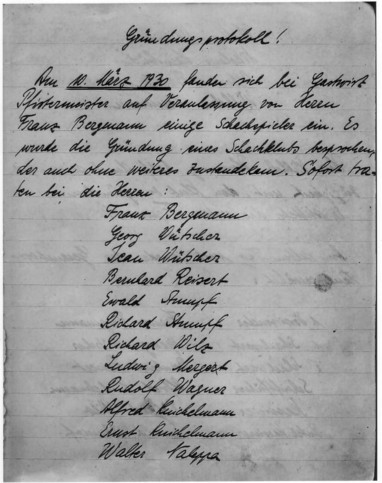 Gründungsprotokoll!
Am 10. März 1930 fanden sich bei Gastwirt
Pfistermeister auf Veranlassung von Herrn
Franz Bergmann einige Schachspieler ein. Es
wurde die Gründung eines Schachklubs besprochen,
der auch ohne weiteres zustandekam. Sofort tra-
ten bei die Herren:
Franz Bergmann
Georg Wütscher
Jean Wütscher
Bernhard Reisert
Ewald Stumpf
Richard Stumpf
Richard Wilz
Ludwig Mergert
Rudolf Wagner
Alfred
Ernst
Walter